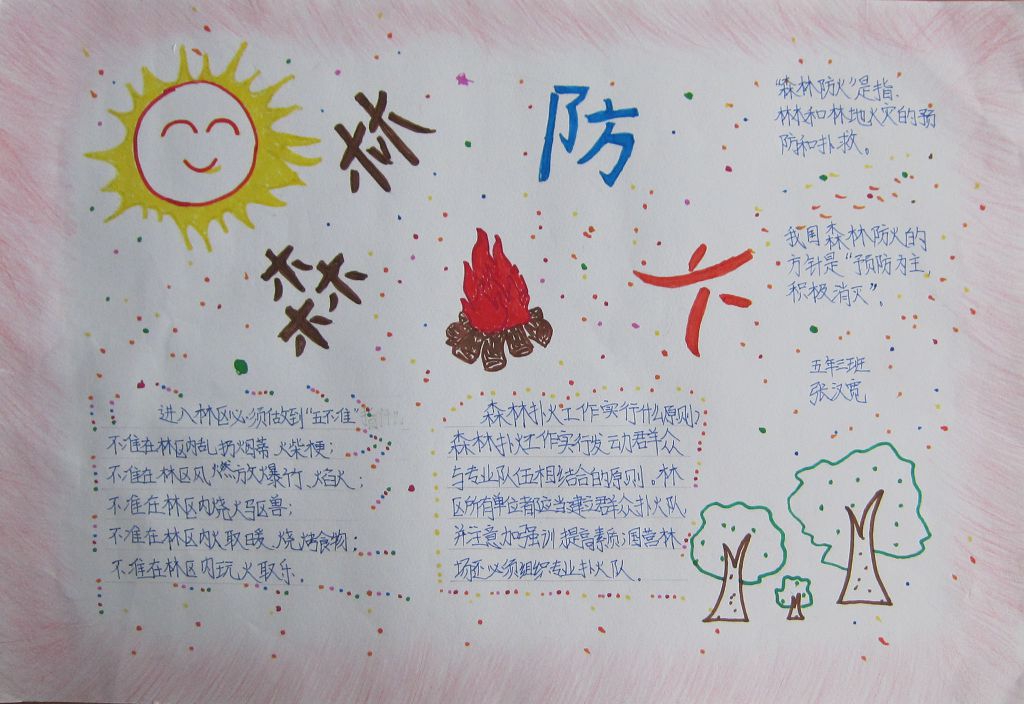 森林防火
"森林防火"是指.
林木和林地火灾的预
防和扑救。
我国森林防火的
方针是"预防为主
积极消灭".
五年三班
张汉宽
进入林区必须做到"五不准"
不准在林区内乱扔烟蒂、火柴梗;
不准在林区风燃放爆竹、焰火;
不准在林区内烧火驱兽;
不准在林区内火取暖、烧烤食物;
不准在林区内玩火取乐.
森林扑火工作实行什么原则?
森林扑火工作实行发动群众
与专业队伍相结合的原则。林
区所有单位都应当建立群众扑火队
并注意加强训提高素质;国营林
场还必须组织专业扑火队.